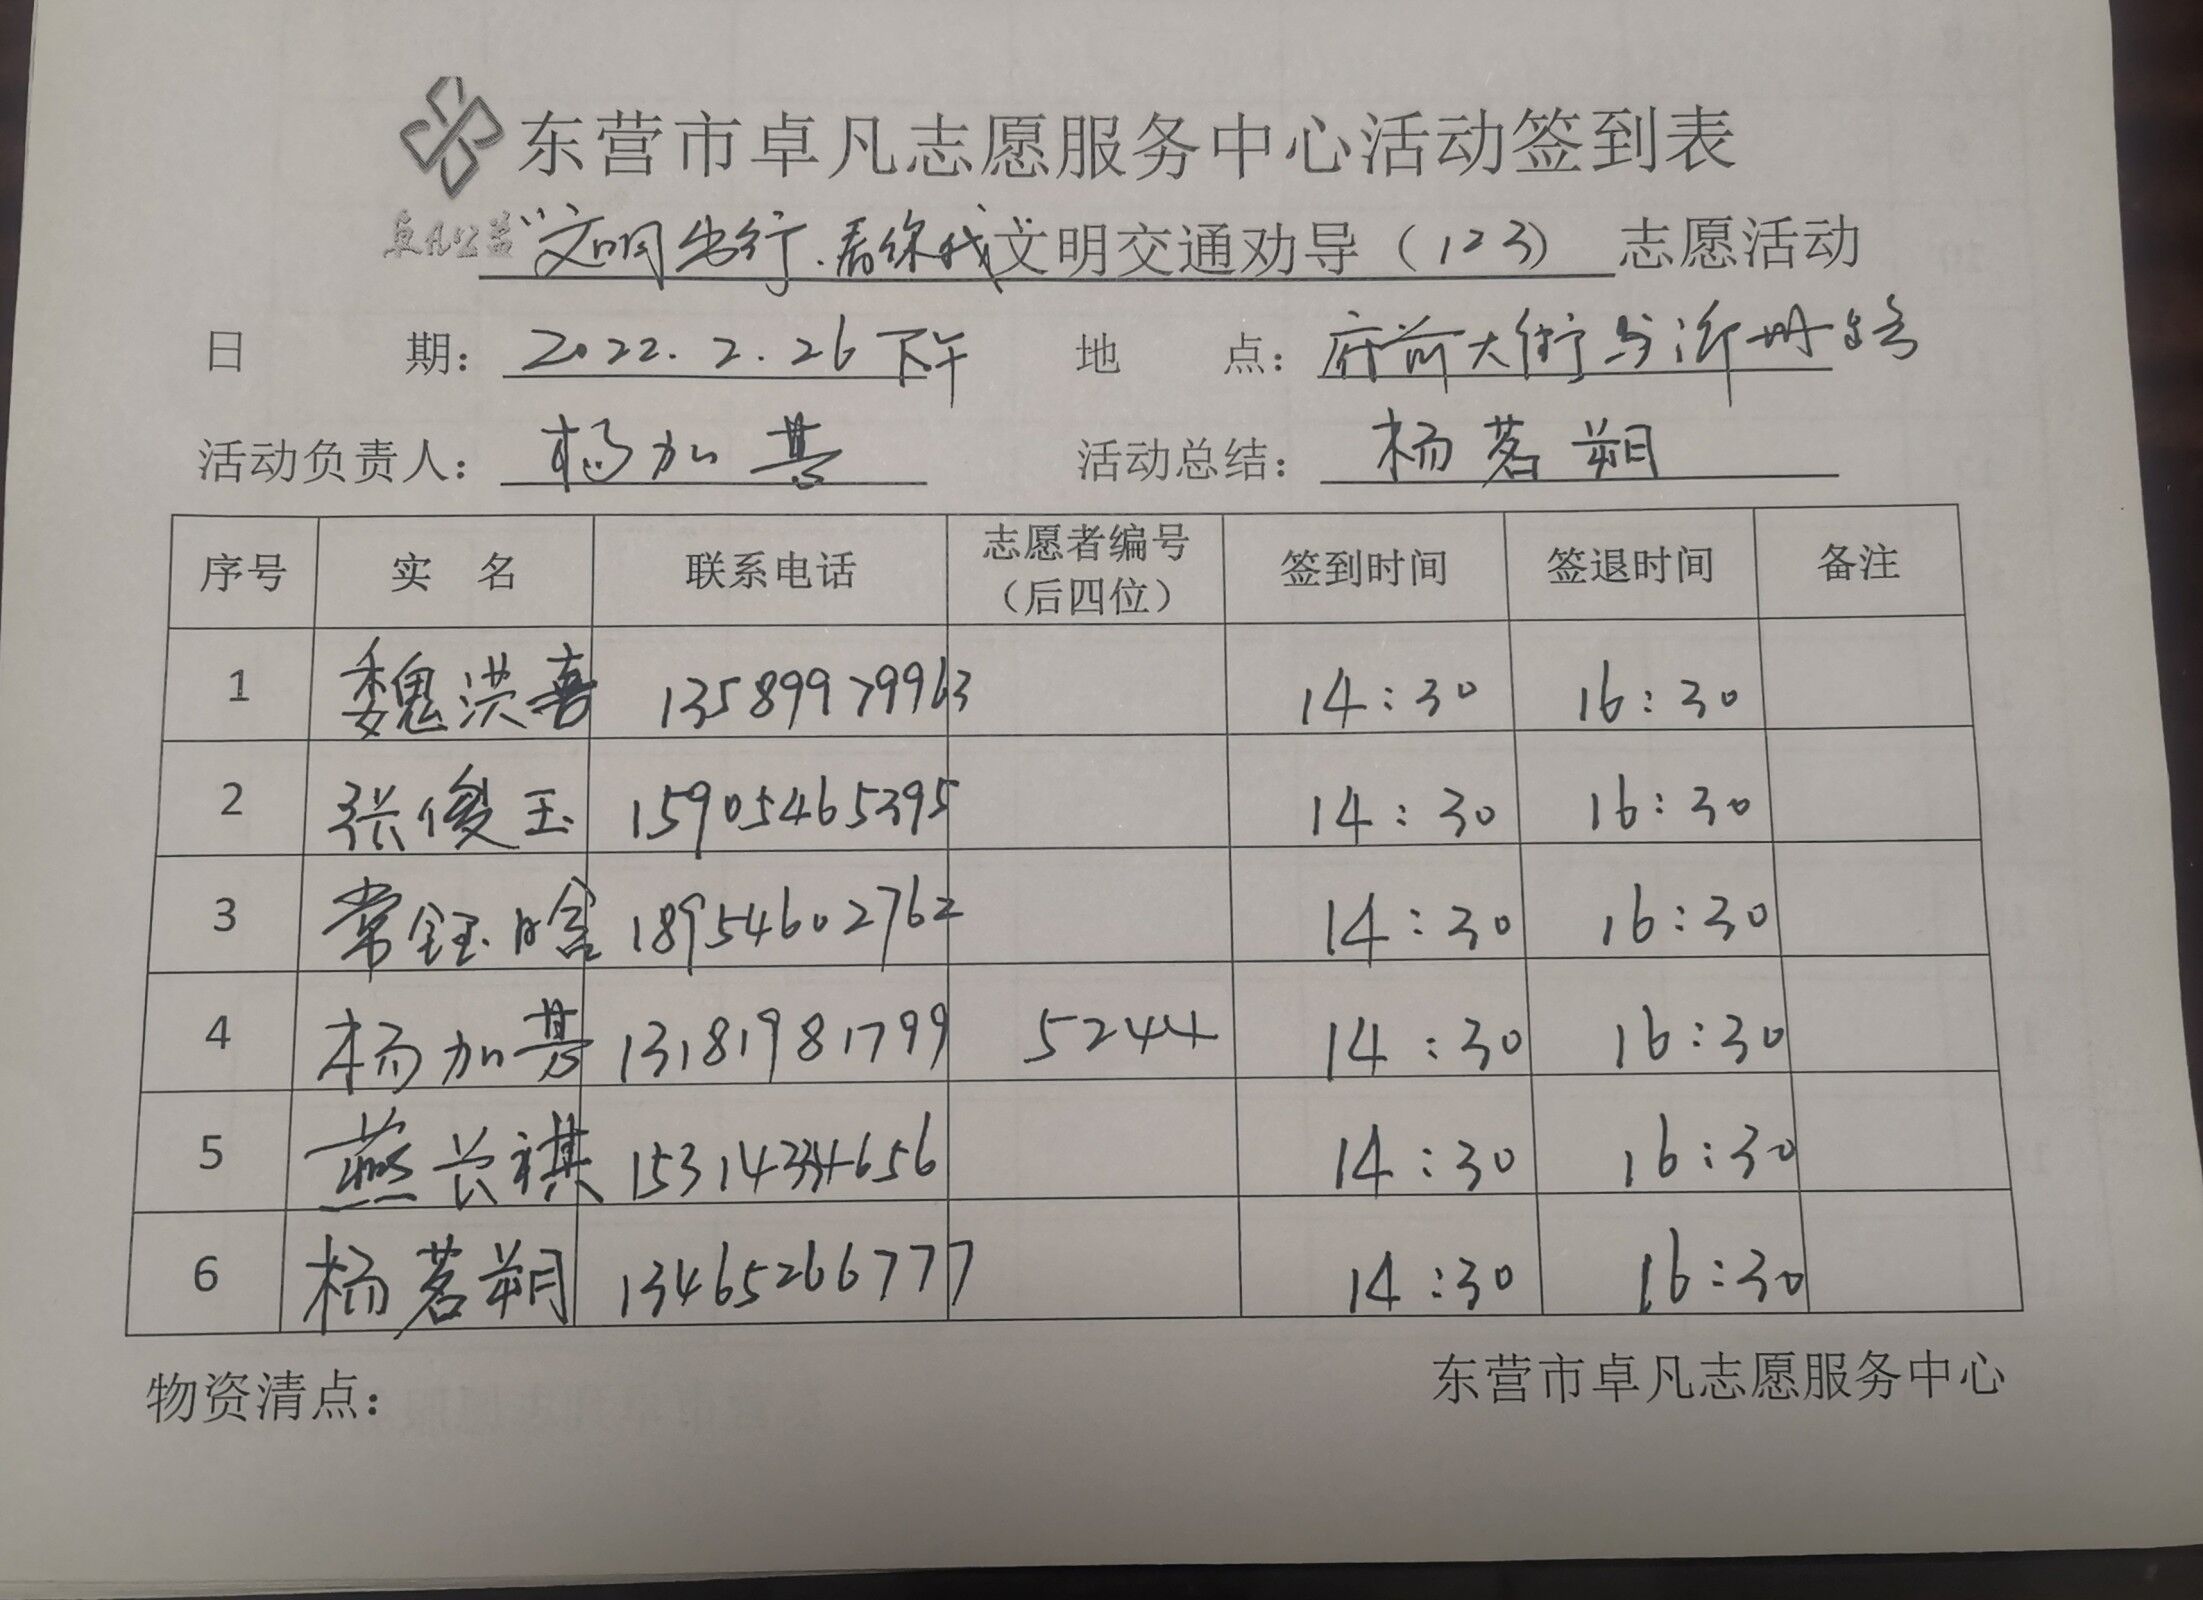 东营市卓凡志愿服务中心活动签到表
卓凡公益
“文明出行.看你我文明交通劝导（123）志愿活动
日期：2022.2.26下午 地点：府前大街与沂州路
活动负责人：杨加 活动总结：杨茗朔
序号 实名 联系电话 志愿者编号（后四位） 签到时间 签退时间 备注
1 魏洪喜 13589979963 14:30 16:30
2 张俊玉 15905465395 14:30 16:30
3 常钰晗 18954602762 14:30 16:30
4 杨加 13181981799 5244 14:30 16:30
5 燕长祺 14:30 16:30
6 杨茗朔 13465266777 14:30 16:30
物资清点： 东营市卓凡志愿服务中心